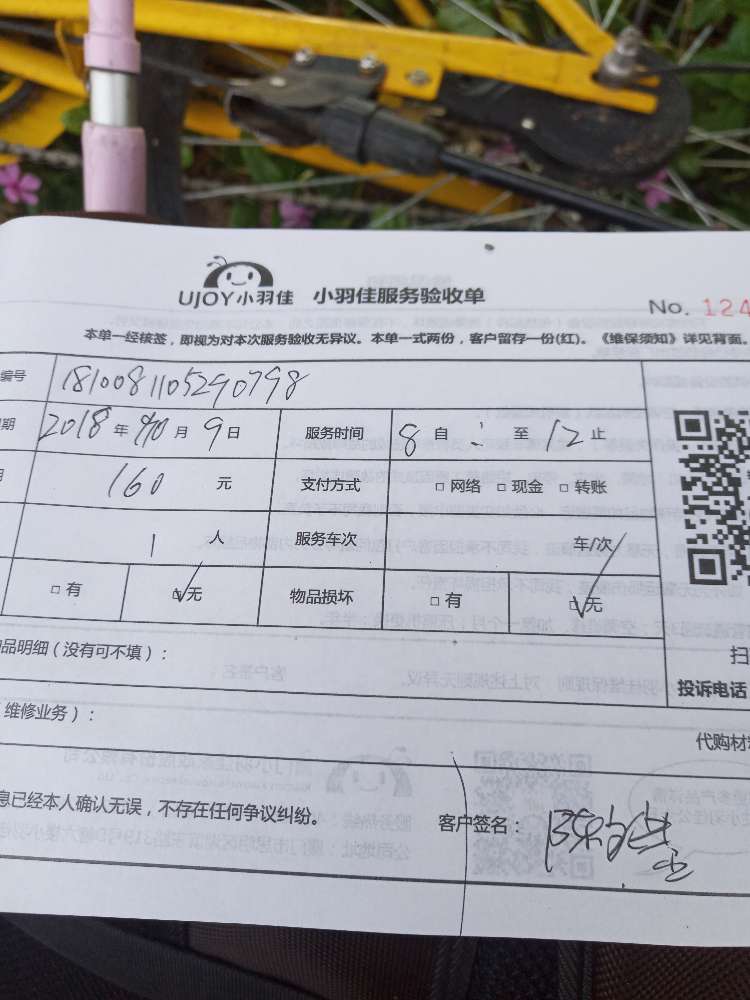 UJOY小羽佳 小羽佳服务验收单
No. 124
本单一经核签，即视为对本次服务验收无异议。本单一式两份，客户留存一份(红)。《维保须知》详见背面。
编号 1810081105290798
期 2018 年 10 月 9 日 服务时间 8 自 : 至 12 止
160 元 支付方式 □ 网络 □ 现金 □ 转账
1 人 服务车次 车/次
□ 有 □ 无 物品损坏 □ 有 □ 无
扫
品明细（没有可不填）：
投诉电话
维修业务）：
代购材
息已经本人确认无误，不存在任何争议纠纷。
客户签名：